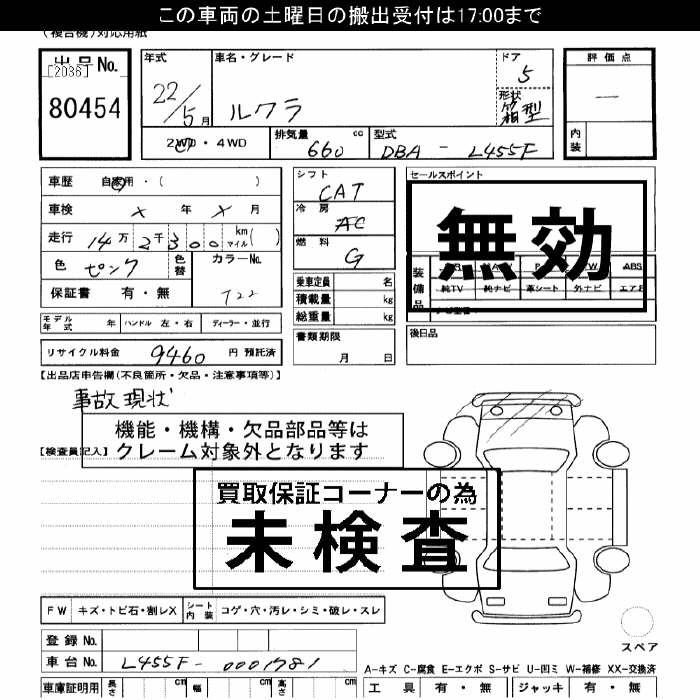 この車両の土曜日の搬出受付は17:00まで
(複合機)対応用紙
出品No.
[2036]
80454
年式
22/5月
車名・グレード
ルクラ
ドア
5
形状
箱型
評価点
―
内装
2WD・4WD
排気量
660 cc
型式
DBA - L455F
車歴 自家用・( )
車検 X 年 X 月
走行 14万2千300 km マイル( )
色 ピンク
色替
カラーNo.
T22
保証書 有・無
シフト
CAT
冷房
AC
燃料
G
乗車定員 名
積載量 kg
総重量 kg
セールスポイント
無効
装備品
ABS
純TV 純ナビ 革シート 外ナビ エアB
モデル年式 年 ハンドル 左・右 ディーラー・並行
書類期限
月 日
後日品
リサイクル料金 9460 円 預託済
【出品店申告欄(不良箇所・欠品・注意事項等)】
事故現状
機能・機構・欠品部品等は
クレーム対象外となります
【検査員記入】
買取保証コーナーの為
未検査
FW キズ・トビ石・割レX
シート内装 コゲ・穴・汚レ・シミ・破レ・スレ
登録No.
車台No. L455F-0001781
スペア
A-キズ C-腐食 E-エクボ S-サビ U-凹ミ W-補修 XX-交換済
車庫証明用 長さ cm 幅 cm 高さ cm
工具 有・無 ジャッキ 有・無